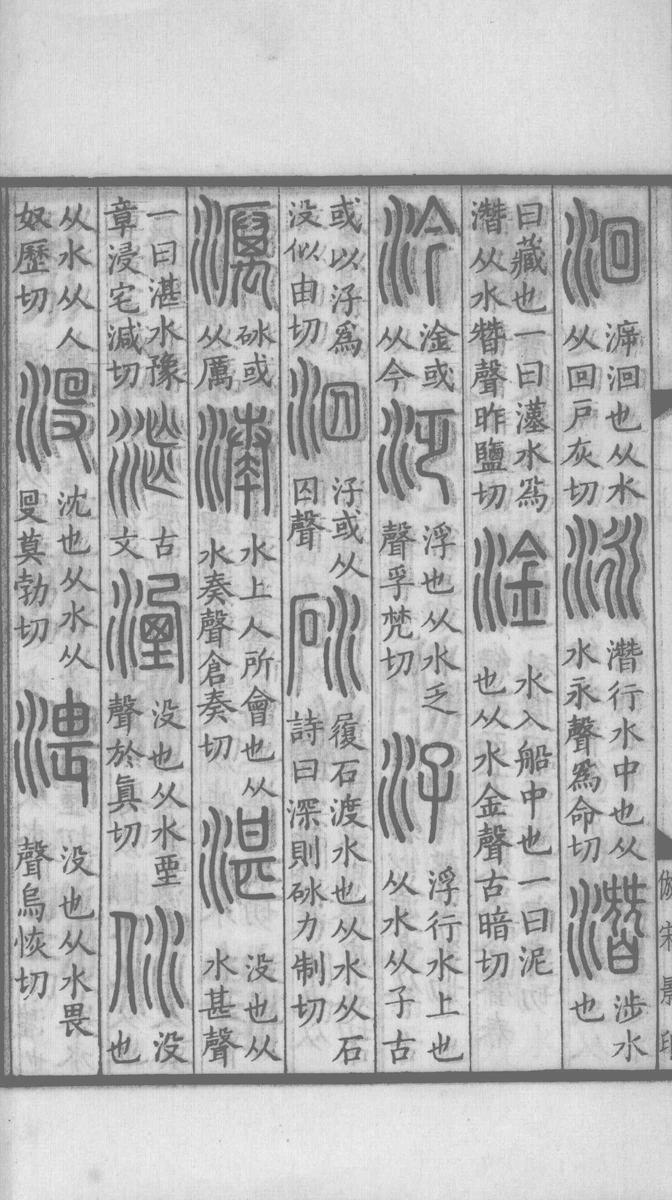 洄㴑洄也从水从回戶灰切泳潛行水中也从水永聲爲命切潛涉水也
曰藏也一曰灊水爲潛从水朁聲昨鹽切淦水入船中也一曰泥也从水金聲古暗切
汵淦或从今泛浮也从水乏聲孚梵切汓浮行水上也从水从子古
或以汓爲没似由切泅汓或从囚聲砅履石渡水也从水从石詩曰深則砅力制切
濿砅或从厲湊水上人所會也从水奏聲倉奏切湛没也从水甚聲
一曰湛水豫章浸宅減切古文湮没也从水垔聲於真切㲻没也
从水从人奴歷切没沈也从水从𠬸莫勃切渨没也从水畏聲烏恢切